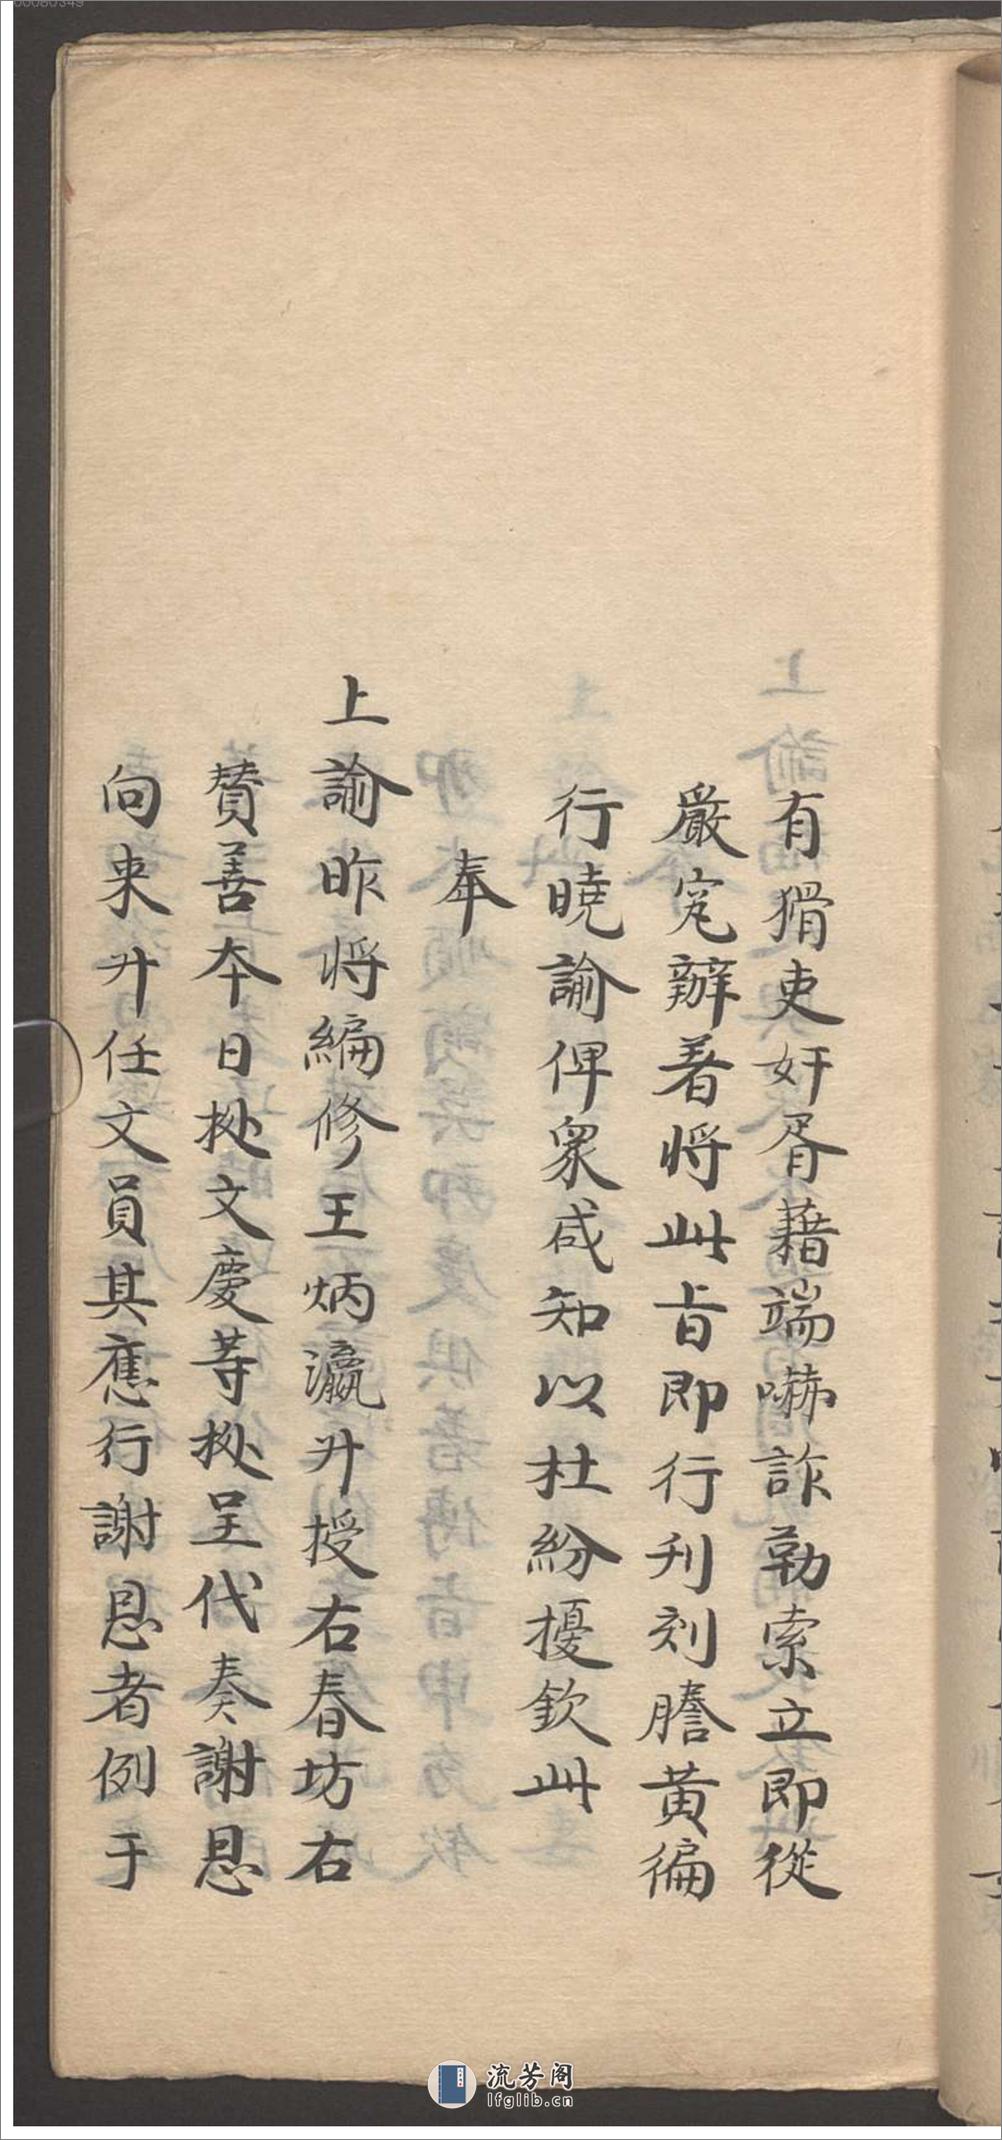 有猾吏奸胥藉端嚇詐勒索立即從
嚴究辦着將此旨即行刊刻謄黃徧
行曉諭俾衆咸知以杜紛擾欽此
奉
上諭昨將編修王炳瀛升授右春坊右
賛善本日據文慶等據呈代奏謝恩
向来升任文員其應行謝恩者例于
流芳阁
lfglib.cn
00080349